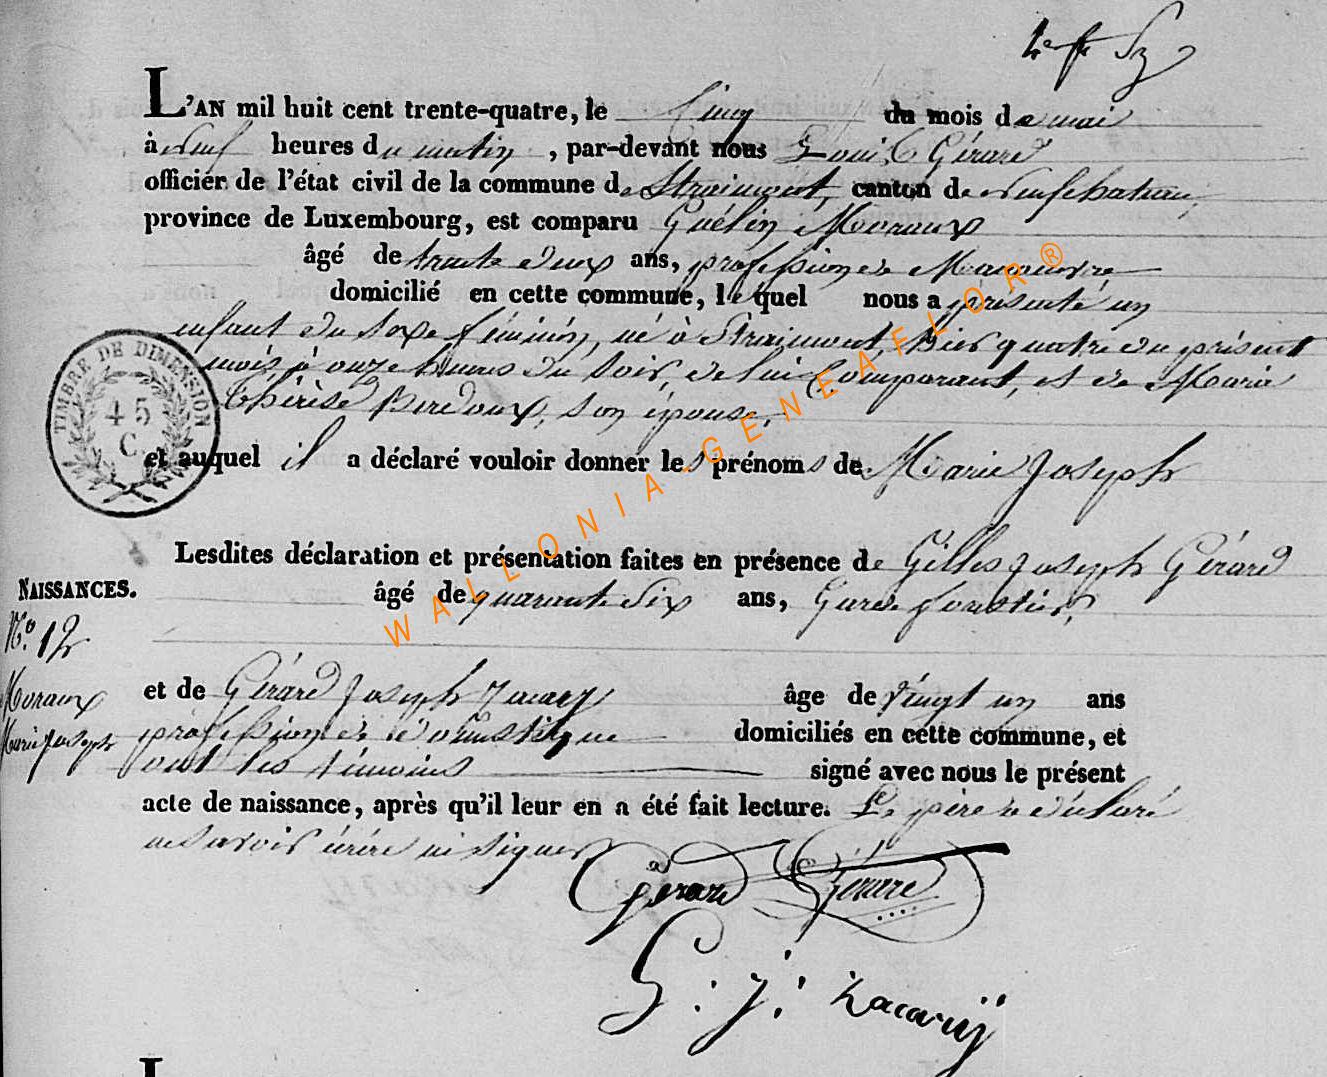 L'AN mil huit cent trente-quatre, le Cinq du mois de mai
à neuf heures du matin, par-devant nous Louis Gérard
officier de l'état civil de la commune de Straimont, canton de neufchateau,
province de Luxembourg, est comparu Guélin Moraux
âgé de trente deux ans, profession de Manouvre
domicilié en cette commune, lequel nous a présenté un
enfant du sexe féminin, né à Straimont, hier quatre du présent
mois à onze heures du soir, de lui Comparant, et de Marie
Thérèse Berdoux, son épouse,
et auquel il a déclaré vouloir donner les prénoms de Marie Joseph
Lesdites déclaration et présentation faites en présence de Gilles Joseph Gérard
âgé de quarante Six ans, Garde forestier,
et de Gérard Joseph Zacary âge de vingt un ans
profession de domestique domiciliés en cette commune, et
ont les témoins signé avec nous le présent
acte de naissance, après qu'il leur en a été fait lecture. Le père a déclaré
ne savoir écrire ni signer
Gérard Gérard
G: J: Zacarij
NAISSANCES.
N.º 12
Moraux
Marie Joseph
TIMBRE DE DIMENSION
45
C.
WALLONIA-GENEAFLOR®